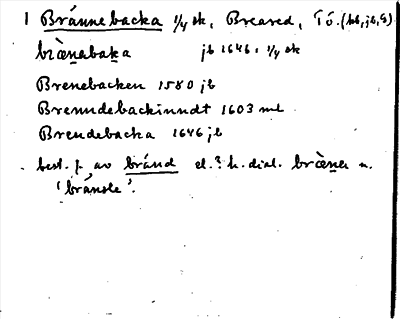 1 Brännebacka 1/4 sk, Breared, Tö. (hb, jb, G)
bræ̀nabaka jb 1646: 1/4 sk
Brenebacken 1580 jb
Brenndebackinndt 1603 ml
Brendebacka 1646 jb
best. f. av bränd el.? h. dial. bræ̀na n.
'bränsle'.